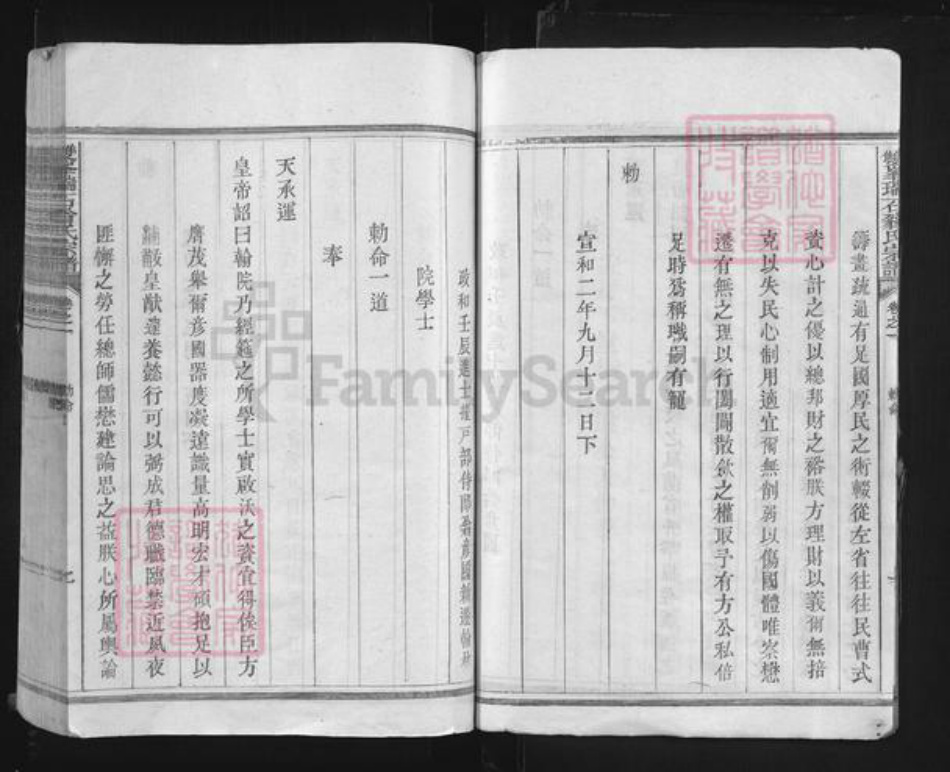 籌畫疏通有足國厚民之術輟從左省往往民曹式
資心計之優以總邦財之裕朕方理財以義爾無掊
克以失民心制用適宜爾無削弱以傷國體唯家懋
遷有無之理以行闔闢散斂之權取予有方公私倍
足時爲稱職嗣有寵
勅
宣和二年九月十二日下
政和壬辰進士擢戶部侍郎翁彥國
院學士
勅命一道
奉
天承運
皇帝詔曰翰院乃經筵之所學士實啟沃之資宜得俟臣方
膺茂舉爾彥國器度凝遠識量高明宏才碩抱足以
黼黻皇猷達養懿行可以弼成君德職臨禁近夙夜
匪懈之勞任總師儒懋建論思之益朕心所屬輿論
FamilySearch